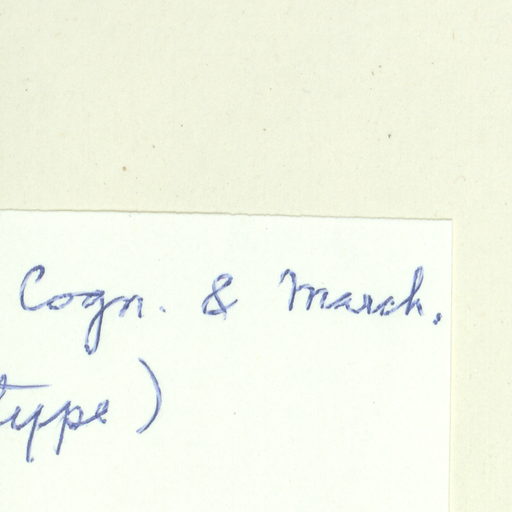 Cogn. & March.
type)